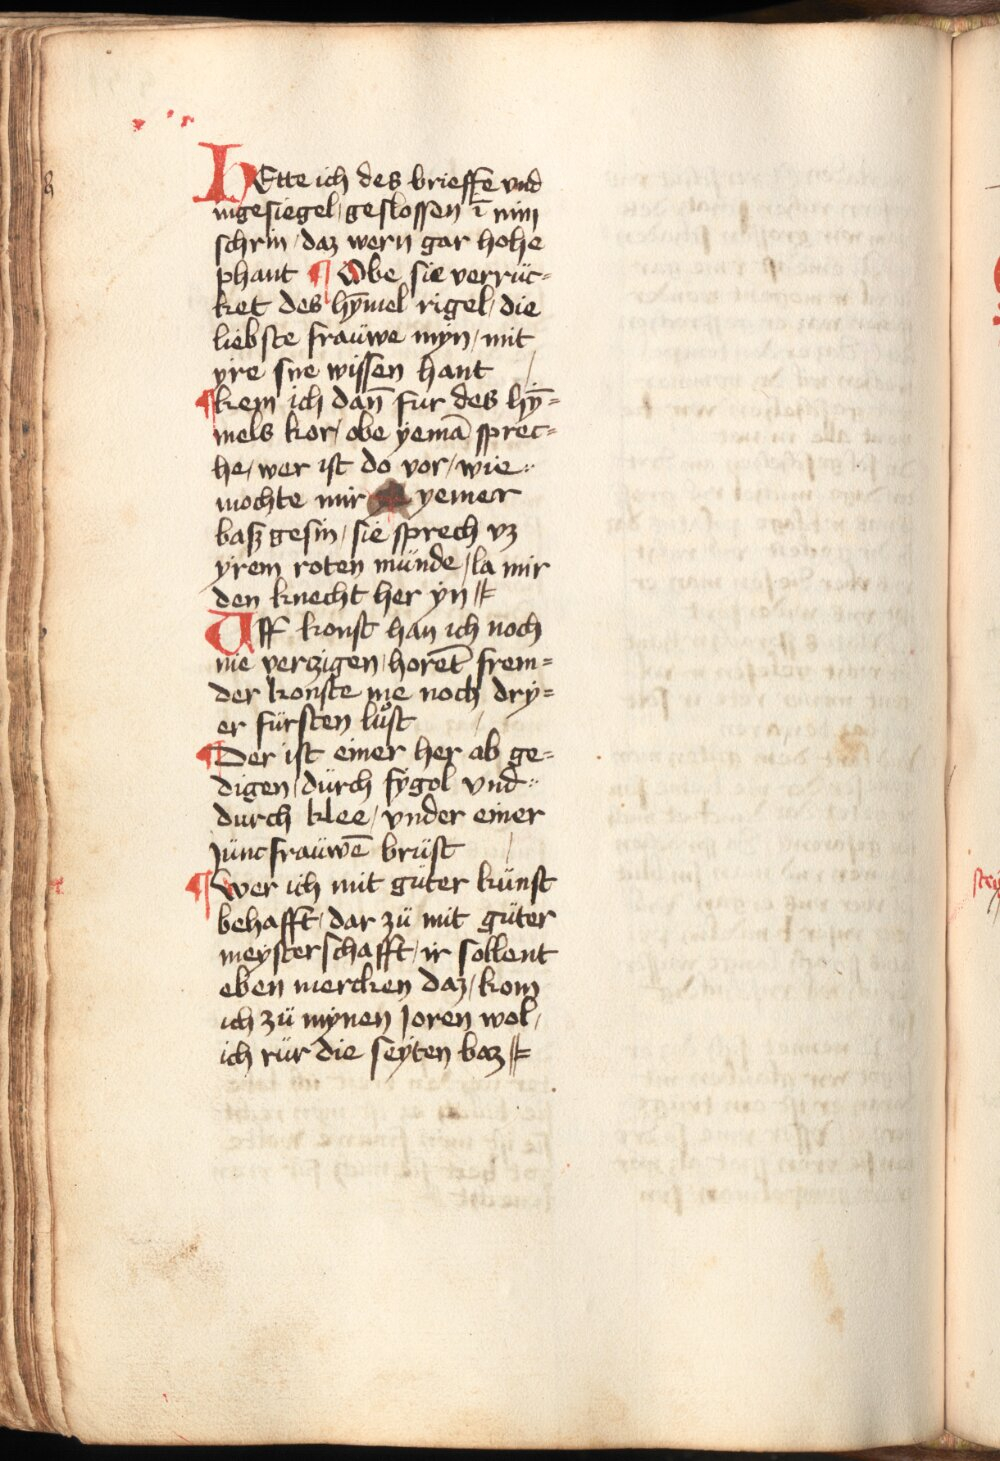 HEtte ich des brieffe vnd
ingesiegel / geslossen ī min
schrin / daz wern gar hohe
phant ¶ Obe sie verrüc=
ket des hȳmel rigel / die
liebste fraüwe mÿn / mit
ÿre sne wissen hant /
¶ kem ich dan̄ fur des hȳ=
mels kor / obe ÿemā sprec=
he / wer ist do vor / wie
mochte mir yemer
basz gesin / sie sprech vz
ÿrem roten münde / la mir
den knecht her ÿn
Uff konst han ich noch
nie verzigen / horet̄ frem=
der konste me noch drÿ=
er fürsten lust /
¶ Der ist einer her ab ge=
digen / dürch fÿgol vnd
durch klee / vnder einer
Junc fraüwē brüst /
¶ Wer ich mit güter künst
behafft / dar zü mit güter
meÿsterschafft / ir sollent
eben mercken daz / kom
ich zü mÿnen Joren wol /
ich rür die seÿten baz